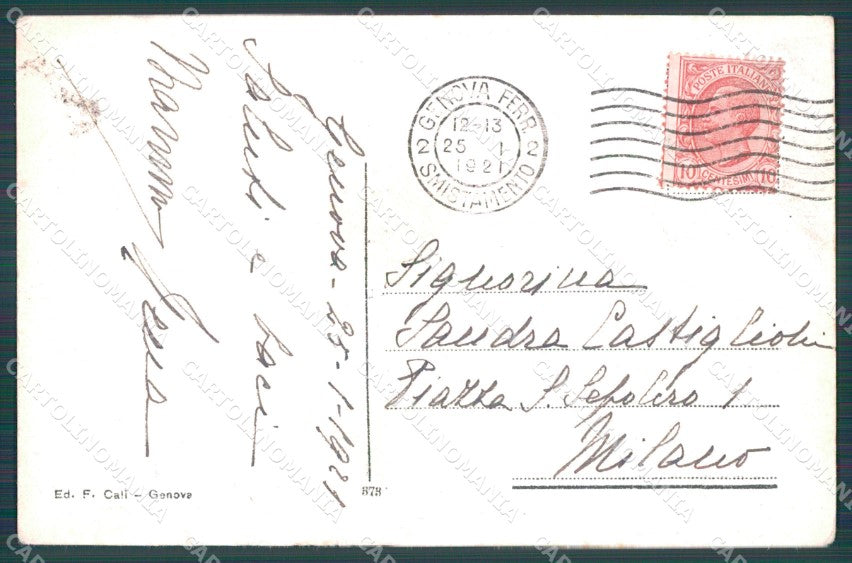 Genova - 25-1-1921
Saluti e baci
GENOVA FERR.
12-13
2 25 1 2
1921
SMISTAMENTO
POSTE ITALIANE
10 CENTESIMI 10
Signorina
Sandra Castiglioni
Piazza S. Sepolcro 1
Milano
Ed. F. Cali - Genova
878
CARTOLINOMANIA